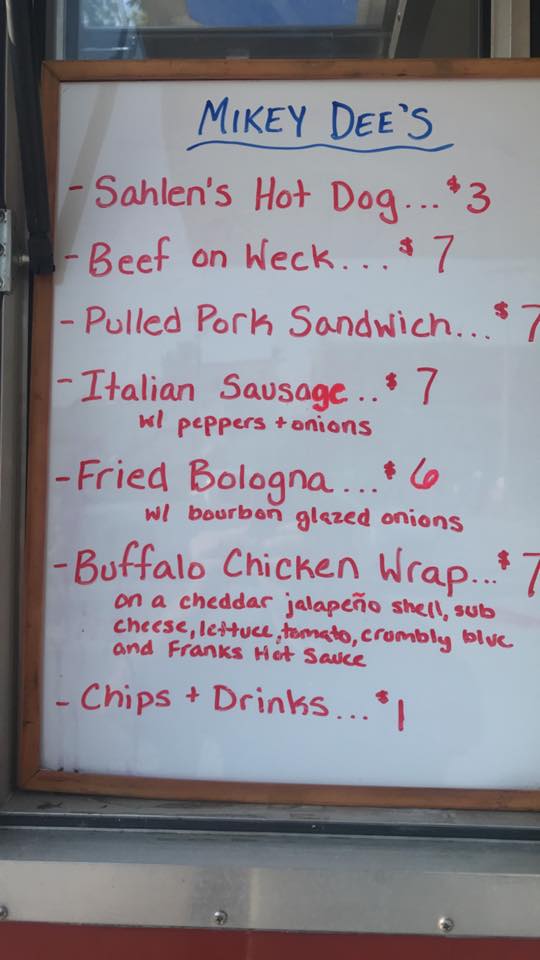 MIKEY DEE'S
- Sahlen's Hot Dog...$3
- Beef on Weck...$7
- Pulled Pork Sandwich...$7
- Italian Sausage..$7
w/ peppers + onions
- Fried Bologna...$6
w/ bourbon glazed onions
- Buffalo Chicken Wrap...$7
on a cheddar jalapeño shell, sub
cheese, lettuce, tomato, crumbly blue
and Franks Hot Sauce
- Chips + Drinks...$1